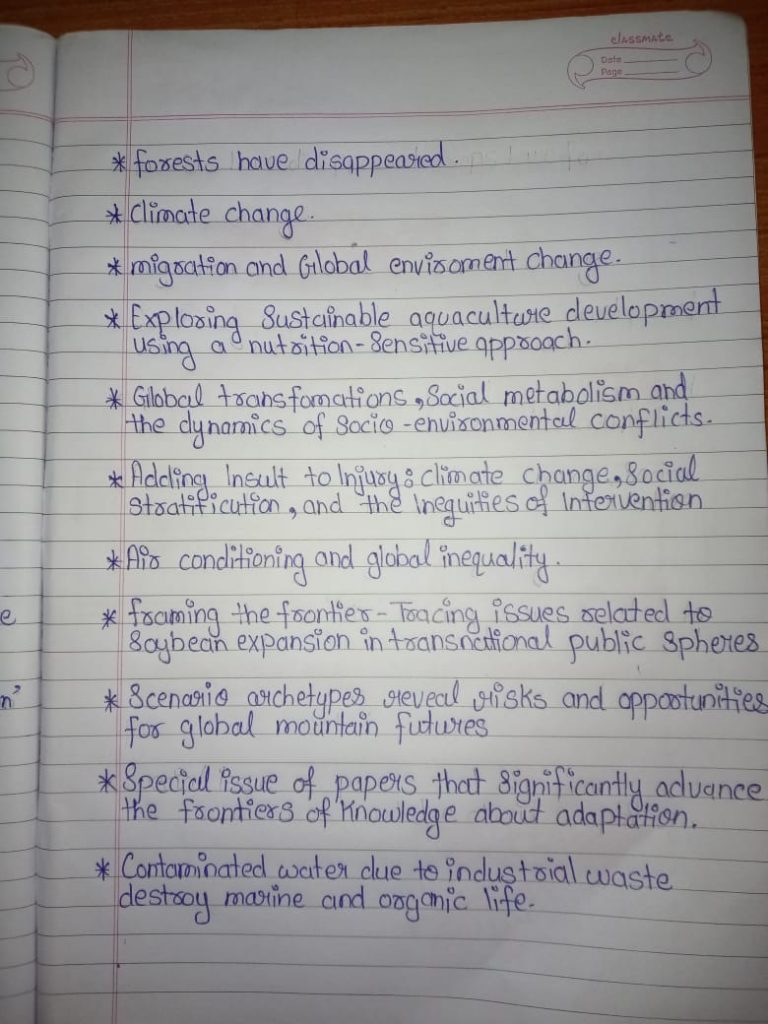 classmate
Date
Page
* forests have disappeared.
* Climate change.
* migration and Global enviroment change.
* Exploring Sustainable aquaculture development
using a nutrition-Sensitive approach.
* Global transfomations, Social metabolism and
the dynamics of Socio-environmental conflicts.
* Adding Insult to Injury: climate change, Social
Stratification, and the Inequities of Intervention
* Air conditioning and global inequality.
* framing the frontier - Tracing issues related to
Soybean expansion in transnational public Spheres
* Scenario archetypes reveal risks and opportunities
for global mountain futures
* Special issue of papers that Significantly advance
the frontiers of Knowledge about adaptation.
* Contaminated water due to industrial waste
destroy marine and organic life.
e
n'